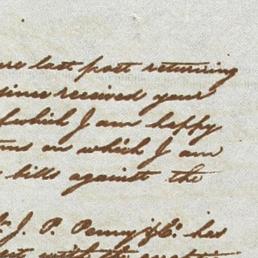 last past returning
since received your
which I am happy
on which I am
bills against the
J. P. Penny & Co. has
with the